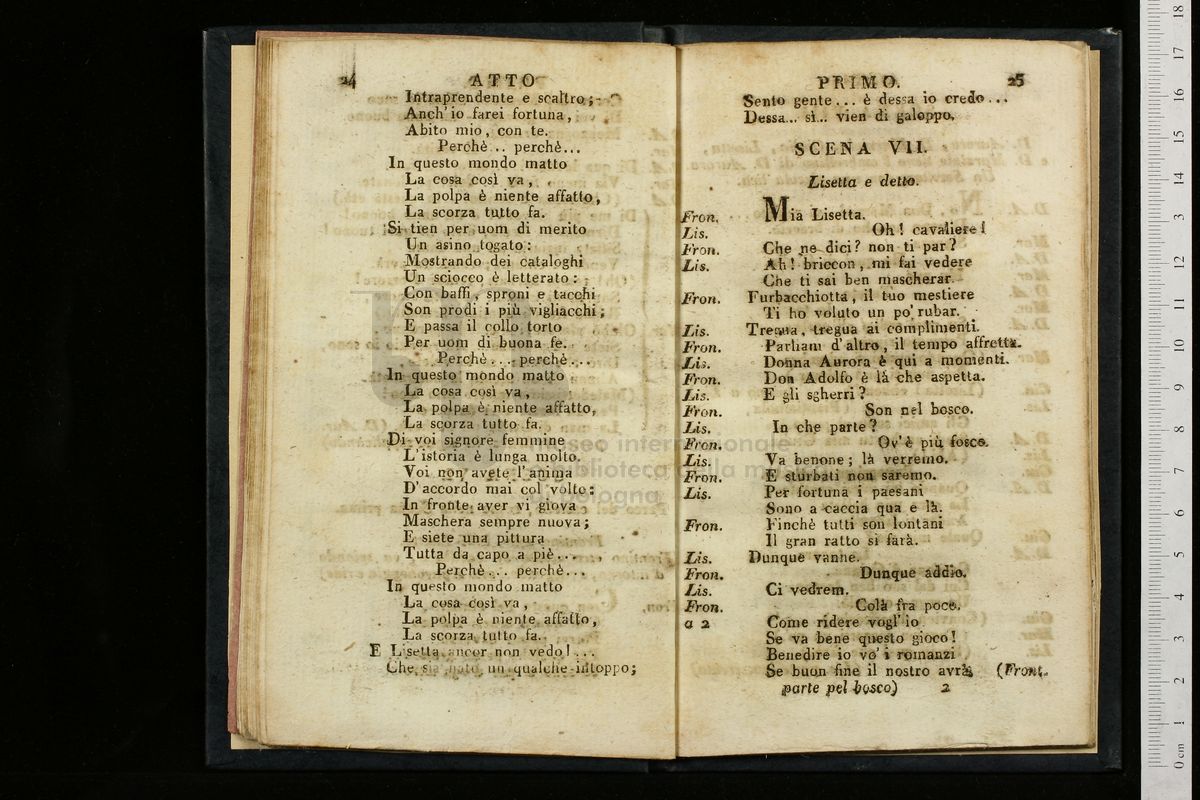 24
ATTO
Intraprendente e scaltro;
Anch' io farei fortuna,
Abito mio, con te.
Perchè... perchè...
In questo mondo matto
La cosa così va,
La polpa è niente affatto,
La scorza tutto fa.
Si tien per uom di merito
Un asino togato:
Mostrando dei cataloghi
Un sciocco è letterato:
Con baffi, sproni e tacchi
Son prodi i più vigliacchi;
E passa il collo torto
Per uom di buona fe.
Perchè... perchè...
In questo mondo matto
La cosa così va,
La polpa è niente affatto,
La scorza tutto fa.
Di voi signore femmine
L' istoria è lunga molto.
Voi non avete l' anima
D' accordo mai col volto:
In fronte aver vi giova
Maschera sempre nuova;
E siete una pittura
Tutta da capo a piè...
Perchè... perchè...
In questo mondo matto
La cosa così va,
La polpa è niente affatto,
La scorza tutto fa.
E Lisetta ancor non vedo!...
Che sia nato un qualche intoppo;
PRIMO.
25
Sento gente... è dessa io credo...
Dessa... sì... vien di galoppo.
SCENA VII.
Lisetta e detto.
Fron. Mia Lisetta.
Lis. Oh! cavaliere!
Fron. Che ne dici? non ti par?
Lis. Ah! briccon, mi fai vedere
Che ti sai ben mascherar.
Fron. Furbacchiotta, il tuo mestiere
Ti ho voluto un po' rubar.
Lis. Tregua, tregua ai complimenti.
Fron. Parliam d' altro, il tempo affretta.
Lis. Donna Aurora è qui a momenti.
Fron. Don Adolfo è là che aspetta.
Lis. E gli sgherri?
Fron. Son nel bosco.
Lis. In che parte?
Fron. Ov' è più fosco.
Lis. Va benone; là verremo.
Fron. E sturbati non saremo.
Lis. Per fortuna i paesani
Sono a caccia qua e là.
Fron. Finchè tutti son lontani
Il gran ratto si farà.
Lis. Dunque vanne.
Fron. Dunque addio.
Lis. Ci vedrem.
Fron. Colà fra poco.
a 2 Come ridere vogl' io
Se va bene questo gioco!
Benedire io vo' i romanzi
Se buon fine il nostro avrà. (Front.
parte pel bosco) 2
museo internazionale
e biblioteca della musica
di bologna
0 cm 1 2 3 4 5 6 7 8 9 10 11 12 13 14 15 16 17 18